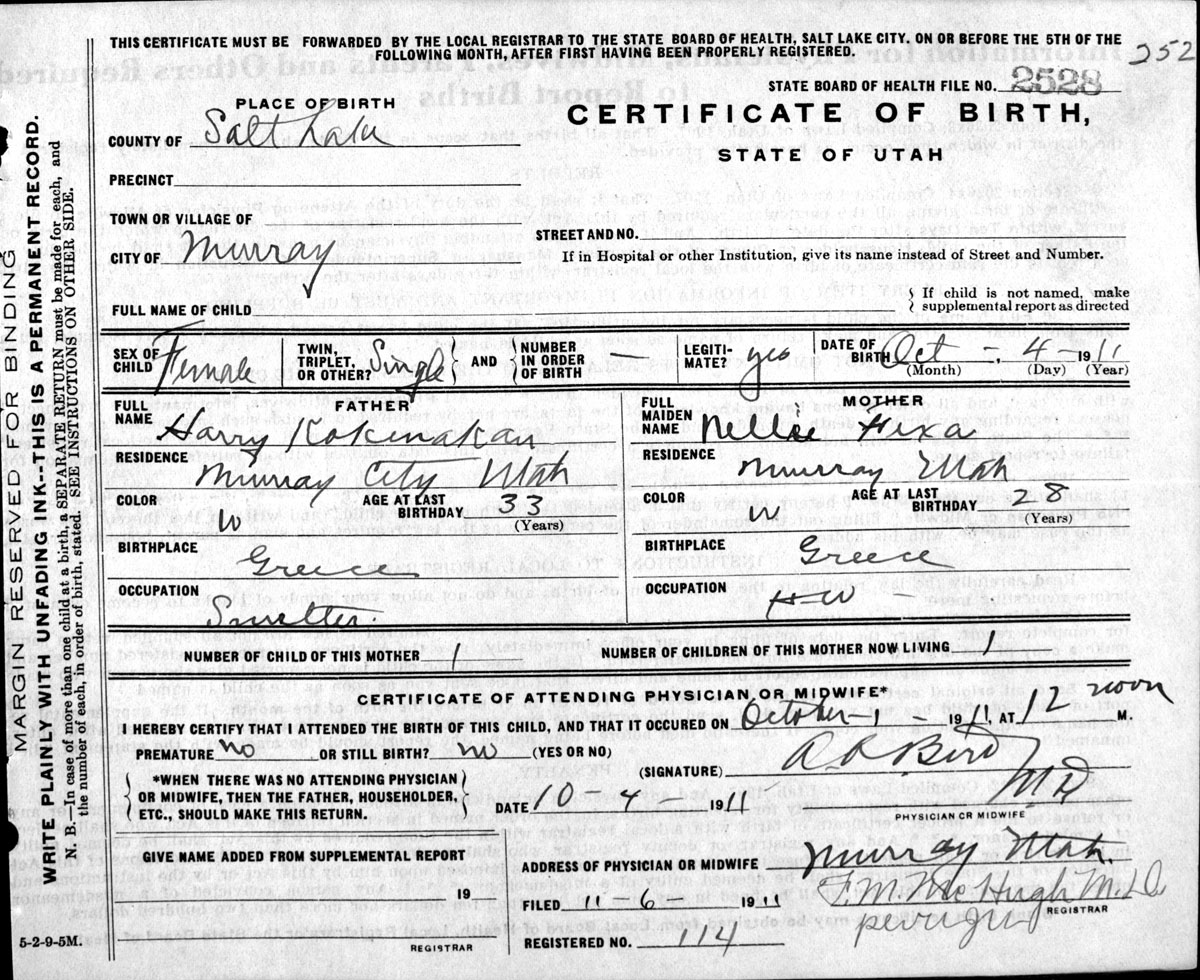 THIS CERTIFICATE MUST BE FORWARDED BY THE LOCAL REGISTRAR TO THE STATE BOARD OF HEALTH, SALT LAKE CITY, ON OR BEFORE THE 5TH OF THE
FOLLOWING MONTH, AFTER FIRST HAVING BEEN PROPERLY REGISTERED.
252
STATE BOARD OF HEALTH FILE NO. 2528
PLACE OF BIRTH
CERTIFICATE OF BIRTH,
COUNTY OF Salt Lake
STATE OF UTAH
PRECINCT
TOWN OR VILLAGE OF
STREET AND NO.
CITY OF Murray
If in Hospital or other Institution, give its name instead of Street and Number.
FULL NAME OF CHILD
} If child is not named, make
{ supplemental report as directed
SEX OF CHILD Female
TWIN, TRIPLET, OR OTHER? Single
AND NUMBER IN ORDER OF BIRTH —
LEGITI-MATE? yes
DATE OF BIRTH Oct - 4 - 1911
(Month) (Day) (Year)
FATHER
FULL NAME Harry Kokinakan
RESIDENCE
Murray City Utah
COLOR W AGE AT LAST BIRTHDAY 33
(Years)
BIRTHPLACE
Greece
OCCUPATION
Smelter.
MOTHER
FULL MAIDEN NAME Nellie Fixa
RESIDENCE
Murray Utah
COLOR W AGE AT LAST BIRTHDAY 28
(Years)
BIRTHPLACE
Greece
OCCUPATION
H-W -
NUMBER OF CHILD OF THIS MOTHER 1 NUMBER OF CHILDREN OF THIS MOTHER NOW LIVING 1
CERTIFICATE OF ATTENDING PHYSICIAN OR MIDWIFE*
I HEREBY CERTIFY THAT I ATTENDED THE BIRTH OF THIS CHILD, AND THAT IT OCCURED ON October-1- 1911, AT 12 noon M.
PREMATURE no OR STILL BIRTH? no (YES OR NO)
(SIGNATURE) Bird
MD
PHYSICIAN OR MIDWIFE
*WHEN THERE WAS NO ATTENDING PHYSICIAN
OR MIDWIFE, THEN THE FATHER, HOUSEHOLDER,
ETC., SHOULD MAKE THIS RETURN.
DATE 10-4- 1911
GIVE NAME ADDED FROM SUPPLEMENTAL REPORT
19
REGISTRAR
ADDRESS OF PHYSICIAN OR MIDWIFE Murray Utah.
FILED 11 6 1911 F. M. McHugh M.D.
REGISTRAR
REGISTERED NO. 114
5-2-9-5M.
MARGIN RESERVED FOR BINDING
WRITE PLAINLY WITH UNFADING INK--THIS IS A PERMANENT RECORD.
N. B.--In case of more than one child at a birth, a SEPARATE RETURN must be made for each, and
the number of each, in order of birth, stated. SEE INSTRUCTIONS ON OTHER SIDE.